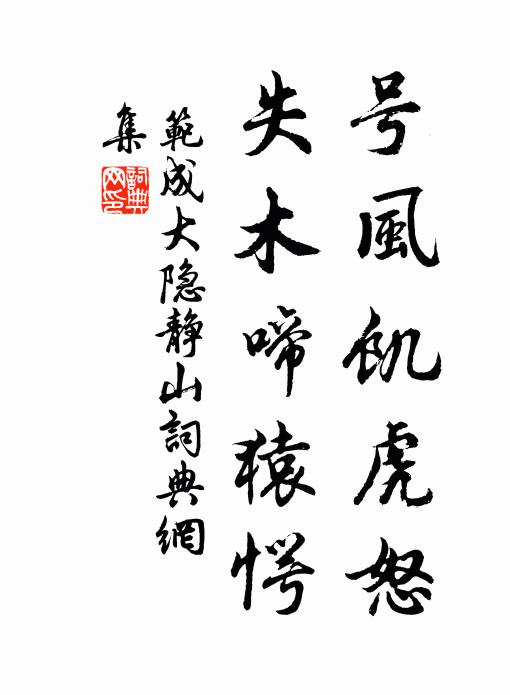 号風飢虎怒
失木啼猿愕
範成大隐静山詞典網
集
詞典网印